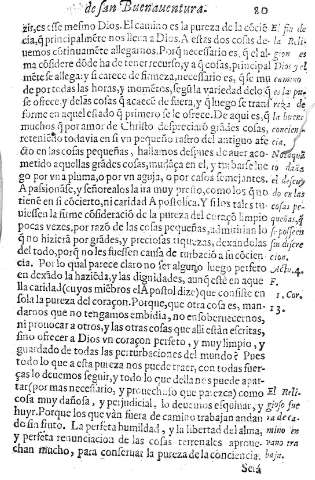 de san Buenauentura. 80
zir, es esse mesmo Dios. El camino es la pureza de la cōciē
cia, q̃ principalmēte nos lleua a Dios. A estas dos cosas de-
uemos continuamēte allegarnos. Porq̃ necessario es, q̃ el al-
ma cōsidere dōde ha de tener recurso, y a q̃ cosas, principal
mēte se allega: y si carece de firmeza, necessario es, q̃ se mu
de por todas las horas, y momētos, segū la variedad de lo q̃
se ofrece. y de las cosas q̃ acaecē de fuera, y q̃ luego se trans
forme en aquel estado q̃ primero se le ofrece. De aqui es, q̃
muchos q̃ por amor de Christo despreciarō grādes cosas,
retenicīdo todavia en si vn pequeño rastro del antiguo afe
cto en las cosas pequeñas, hallamos despues de auer aco-
metido aquellas grādes cosas, mudāça en el, y turbarse lue
go por vna pluma, o por vn aguja, o por casos semejantes.
A passionāse, y señorealos la ira muy presto, como los q̃ no
tienē en si cōcierto, ni caridad Apostolica. Y si los tales tu-
uiessen la sūme cōsideracīō de pureza del coraçō limpio
pocas vezes, por razō de las cosas pequeñas, admitirian lo
q̃ no hizierā por grādes, y preciosas riquezas, dexandolas
del todo, porq̃ no les fuessen causa de turbaciō a su cōcien
cia. Por lo qual parece claro no ser alguno luego perfeto
en dexādo la haziēda, y las dignidades, aunq̃ estē en aque
lla caridad (cuyos miēbros el Apostol dize) que consiste en
sola la pureza del coraçon. Porque, que otra cosa es, man-
darnos que no tengamos embidia, no ensoberuecernos,
ni prouocar a otros, y las otras cosas que alli están escritas,
sino ofrecer a Dios vn coraçon perfeto, y muy limpio, y
guardado de todas las perturbaciones del mundo? Pues
todo lo que a esta pureza nos puede traer, con todas fuer-
ças lo deuemos seguir, y todo lo que della nos puede apar-
tar (por mas necessario, y prouechoso que parezca) como
cosa muy dañosa, y perjudicial, lo deuemos esquinar, y
huyr. Porque los que van fuera de camino trabajan andan
do sin fruto. La perfeta humildad, y la libertad del alma,
y perfeta renunciacion de las cosas terrenales aproue-
chan mucho, para conseruar la pureza de la conciencia.
Será
El fin
de la Reli-
gion es
Dios y el
camino
es la pu-
reza de
concien-
cia.
Act. 4.
F.
1. Cor.
13.
El Reli
gioso fue
ra de ca-
mino en
vano tra
baja.